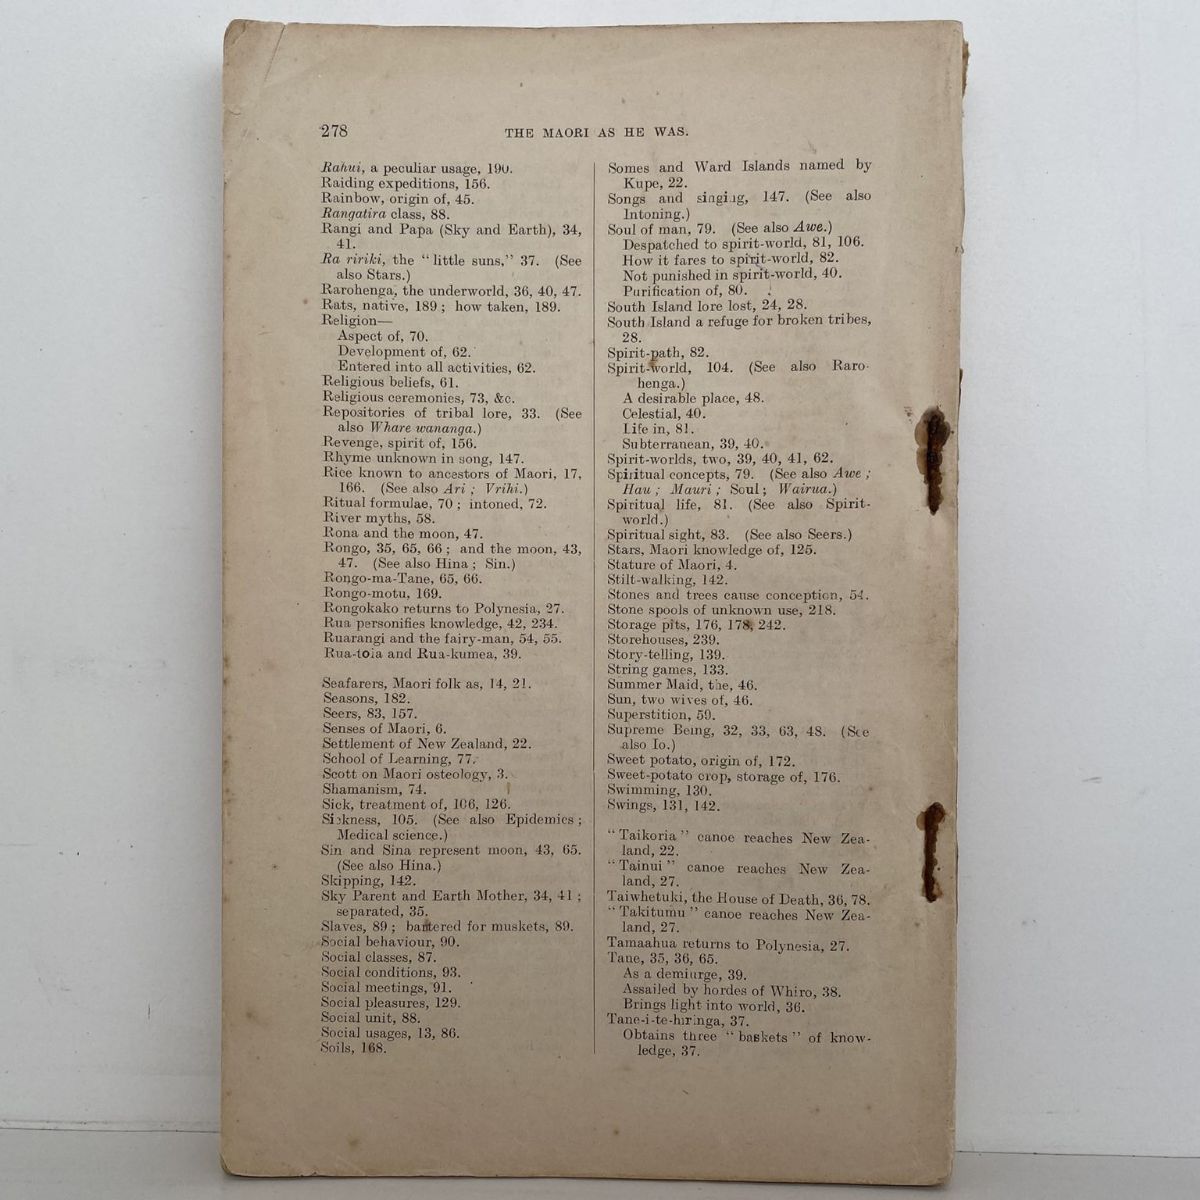 278
THE MAORI AS HE WAS.
Rahui, a peculiar usage, 190.
Raiding expeditions, 156.
Rainbow, origin of, 45.
Rangatira class, 88.
Rangi and Papa (Sky and Earth), 34,
41.
Ra ririki, the “little suns,” 37. (See
also Stars.)
Rarohenga, the underworld, 36, 40, 47.
Rats, native, 189 ; how taken, 189.
Religion—
Aspect of, 70.
Development of, 62.
Entered into all activities, 62.
Religious beliefs, 61.
Religious ceremonies, 73, &c.
Repositories of tribal lore, 33. (See
also Whare wananga.)
Revenge, spirit of, 156.
Rhyme unknown in song, 147.
Rice known to ancestors of Maori, 17,
166. (See also Ari ; Vrihi.)
Ritual formulae, 70 ; intoned, 72.
River myths, 58.
Rona and the moon, 47.
Rongo, 35, 65, 66 ; and the moon, 43,
47. (See also Hina ; Sin.)
Rongo-ma-Tane, 65, 66.
Rongo-motu, 169.
Rongokako returns to Polynesia, 27.
Rua personifies knowledge, 42, 234.
Ruarangi and the fairy-man, 54, 55.
Rua-toia and Rua-kumea, 39.
Seafarers, Maori folk as, 14, 21.
Seasons, 182.
Seers, 83, 157.
Senses of Maori, 6.
Settlement of New Zealand, 22.
School of Learning, 77.
Scott on Maori osteology, 3.
Shamanism, 74.
Sick, treatment of, 106, 126.
Sickness, 105. (See also Epidemics ;
Medical science.)
Sin and Sina represent moon, 43, 65.
(See also Hina.)
Skipping, 142.
Sky Parent and Earth Mother, 34, 41 ;
separated, 35.
Slaves, 89 ; bartered for muskets, 89.
Social behaviour, 90.
Social classes, 87.
Social conditions, 93.
Social meetings, 91.
Social pleasures, 129.
Social unit, 88.
Social usages, 13, 86.
Soils, 168.
Somes and Ward Islands named by
Kupe, 22.
Songs and singing, 147. (See also
Intoning.)
Soul of man, 79. (See also Awe.)
Despatched to spirit-world, 81, 106.
How it fares to spirit-world, 82.
Not punished in spirit-world, 40.
Purification of, 80.
South Island lore lost, 24, 28.
South Island a refuge for broken tribes,
28.
Spirit-path, 82.
Spirit-world, 104. (See also Raro-
henga.)
A desirable place, 48.
Celestial, 40.
Life in, 81.
Subterranean, 39, 40.
Spirit-worlds, two, 39, 40, 41, 62.
Spiritual concepts, 79. (See also Awe ;
Hau ; Mauri ; Soul ; Wairua.)
Spiritual life, 81. (See also Spirit-
world.)
Spiritual sight, 83. (See also Seers.)
Stars, Maori knowledge of, 125.
Stature of Maori, 4.
Stilt-walking, 142.
Stones and trees cause conception, 54.
Stone spools of unknown use, 218.
Storage pits, 176, 178, 242.
Storehouses, 239.
Story-telling, 139.
String games, 133.
Summer Maid, the, 46.
Sun, two wives of, 46.
Superstition, 59.
Supreme Being, 32, 33, 63, 48. (See
also Io.)
Sweet potato, origin of, 172.
Sweet-potato crop, storage of, 176.
Swimming, 130.
Swings, 131, 142.
“Taikoria” canoe reaches New Zea-
land, 22.
“Tainui” canoe reaches New Zea-
land, 27.
Taiwhetuki, the House of Death, 36, 78.
“Takitumu” canoe reaches New Zea-
land, 27.
Tamaahua returns to Polynesia, 27.
Tane, 35, 36, 65.
As a demiurge, 39.
Assailed by hordes of Whiro, 38.
Brings light into world, 36.
Tane-i-te-hiringa, 37.
Obtains three “baskets” of know-
ledge, 37.